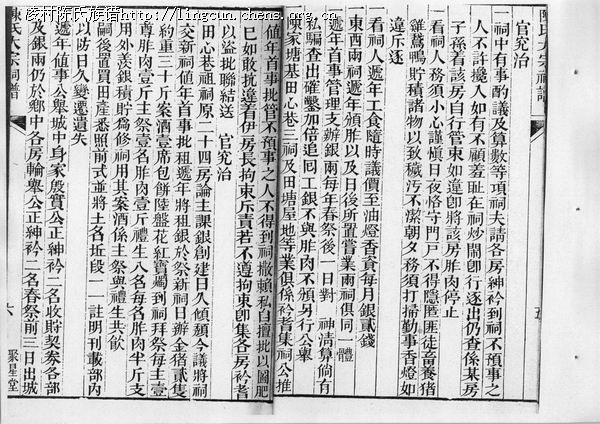 凌村陈氏族谱 http://lingcun.chens.org.cn
陳氏大宗祠譜
五
官究治
一祠中有事酌議及算數等項祠夫請各房紳衿到祠不預事之
人不許攙入如有不顧羞耻在祠炒鬧卽行逐出仍查係某房
子孫着該房自行管束如違卽將該房胙肉停止
一看祠人務須小心謹愼日夜恪守門戸不得隱匿匪徒畜養猪
雞鵞鴨貯積諸物以致穢汚不潔朝夕務須打掃勤事香燈如
違斥逐
一看祠人遞年工食隨時議價至油燈香資每月銀貳錢
一東西兩祠遞年頒胙以及日後所置嘗業兩祠俱同一體
一遞年首事管理支辦銀兩每年春祭後一日對 神清算倘有
私騙查出確鑿加倍追囘工銀不與胙肉不頒另行公舉
一陳家塘基田心巷三祠及田塘屋地等業俱係衿耆集祠公推
値年首事批管不預事之人不得到祠撒賴私自擅批以圖肥
已如敢抗違着伊房長拘束斥責若不遵拘束卽集各房衿耆
以盜批聯結送 官究治
一田心巷祖祠原二十四房論主課銀創建日久傾頽今議將祠
交新祠値年首事批租遞年將租銀於祭新祠日辦金猪貳隻
約重三十斤案酒壹席包餅陸盤花紅寶燭到祠拜祭每主壹
尊胙肉壹斤主祭壹名胙肉壹斤禮生八名每名胙肉半斤支
用外羨銀積貯爲修祠用其案酒係主祭與禮生共飲
一嗣後置買田產悉照前式並將土名坵段一一註明刊載部內
以防日久變遷遺失
一遞年値事公舉城中身家殷實公正紳衿二名收貯契券各部
及銀兩仍於鄉中各房輪舉公正紳衿二名春祭前三日出城
陳氏大宗祠譜
六
聚星堂